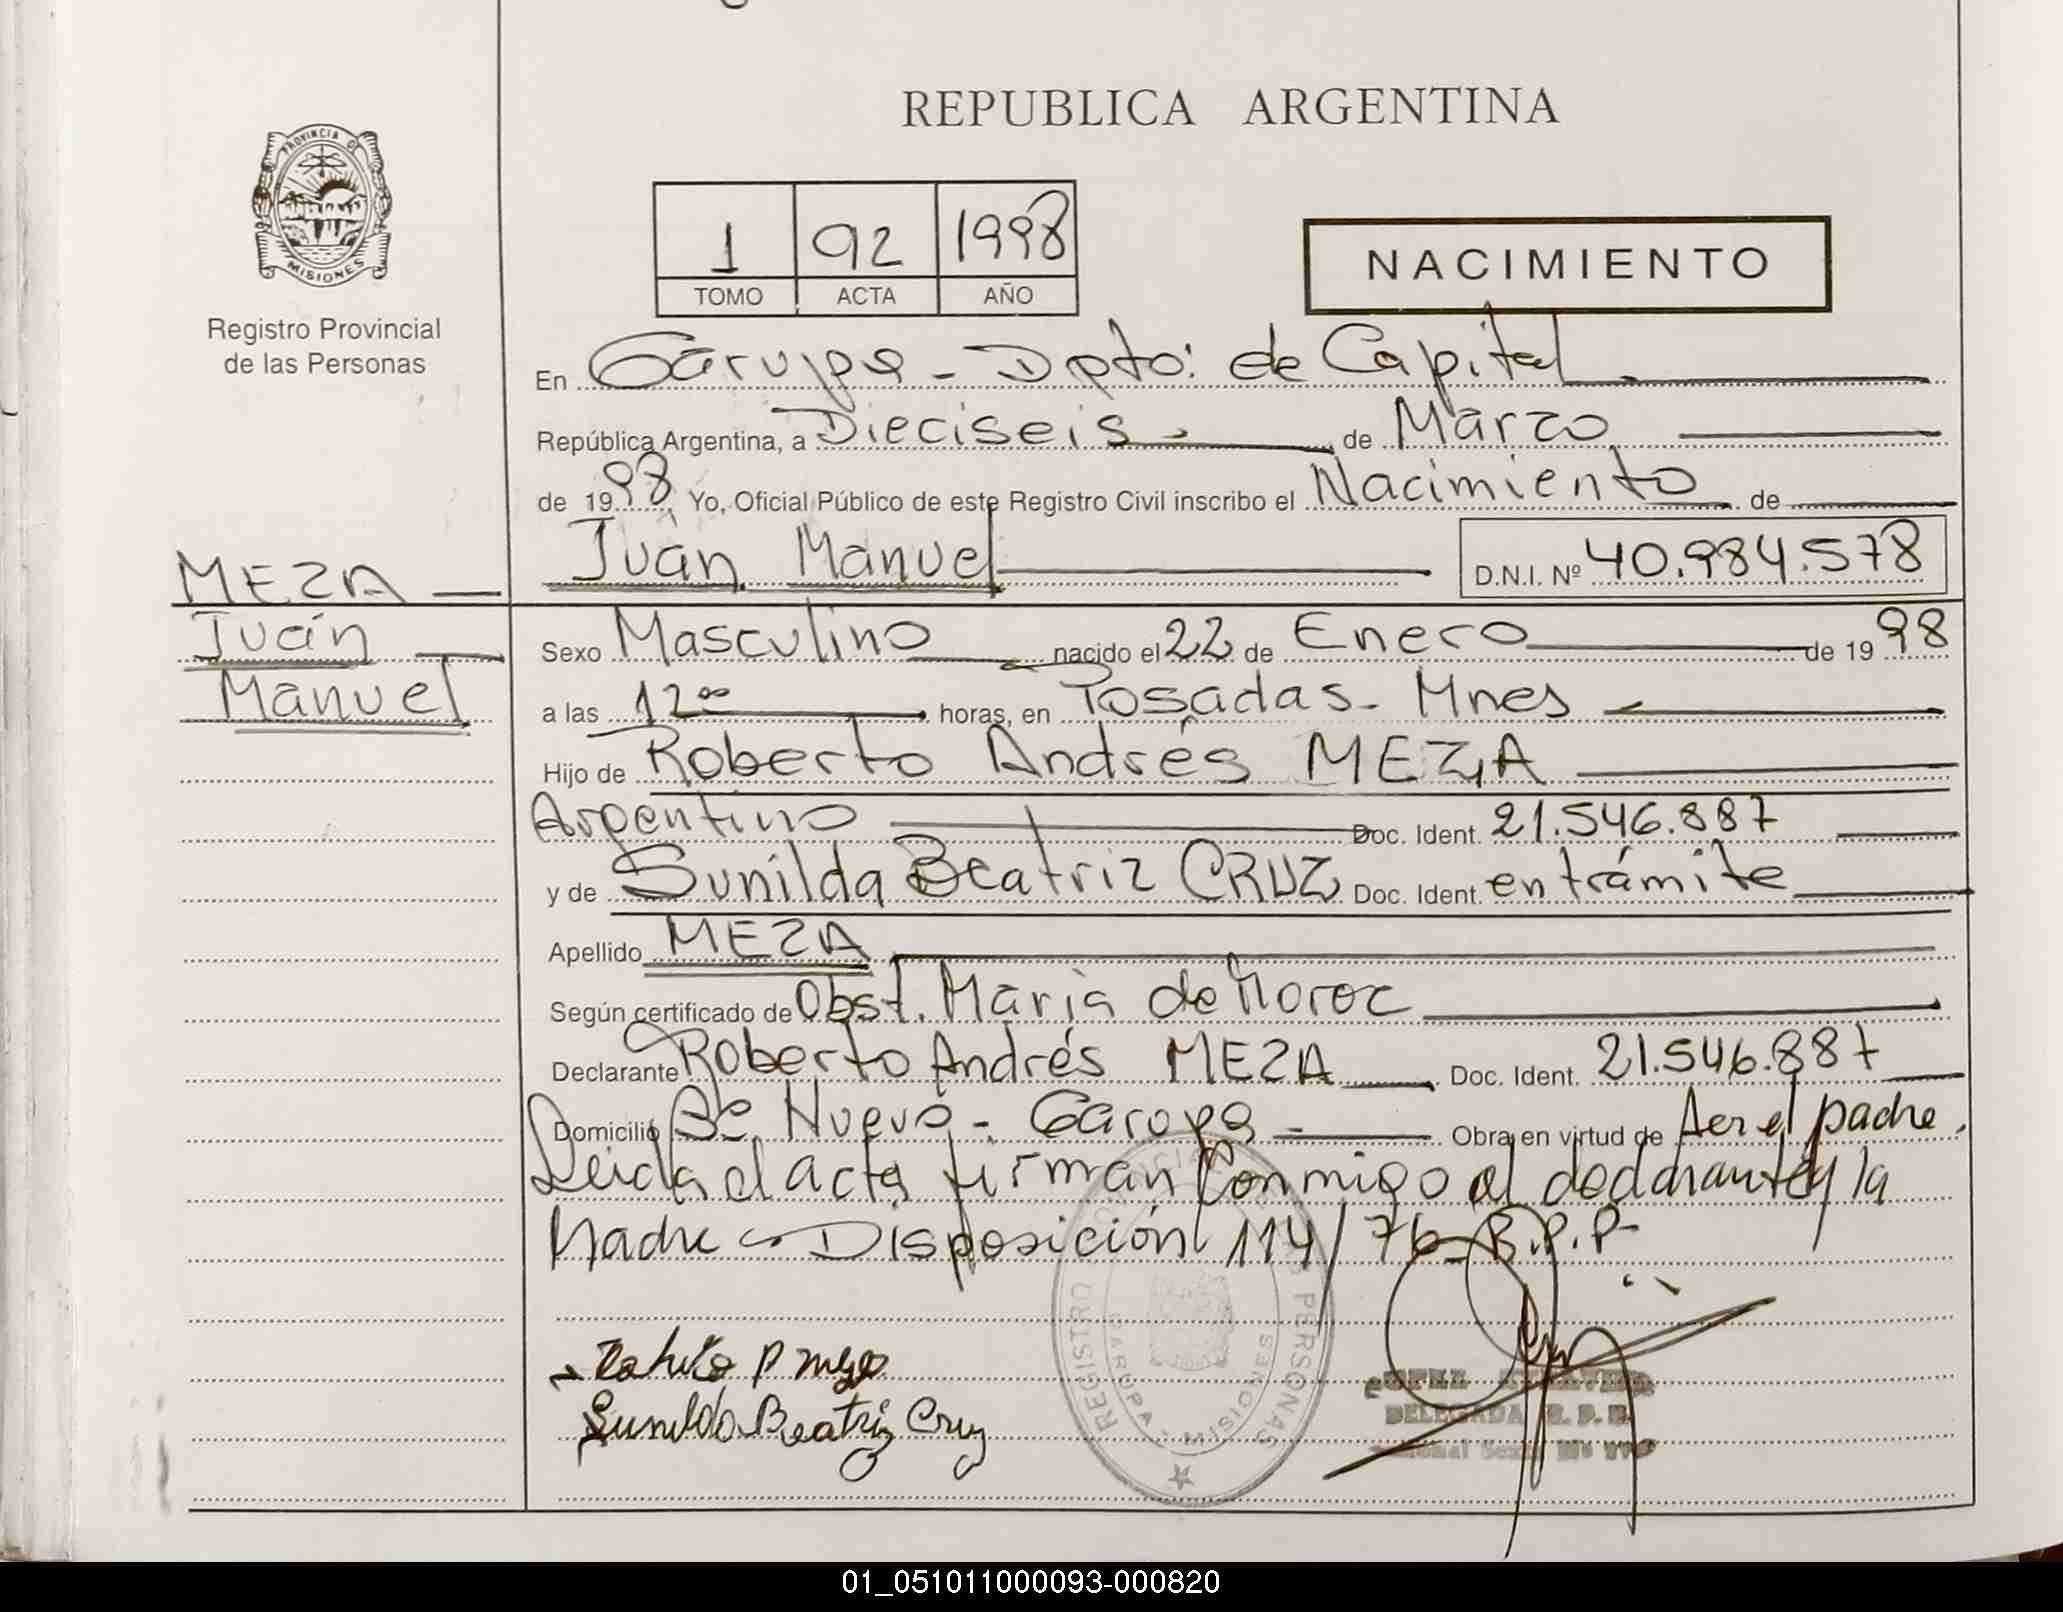 REPUBLICA ARGENTINA
PROVINCIA DE
MISIONES
Registro Provincial
de las Personas
1 92 1998
TOMO ACTA AÑO
NACIMIENTO
En Garupa - Dpto: de Capital
República Argentina, a Dieciseis de Marzo
de 1998 Yo, Oficial Público de este Registro Civil inscribo el Nacimiento de
Juán Manuel D.N.I. Nº 40.984.578
MEZA
Juán
Manuel
Sexo Masculino nacido el 22 de Enero de 1998
a las 12oo horas, en Posadas - Mnes
Hijo de Roberto Andrés MEZA
Argentino Doc. Ident. 21.546.887
y de Sunilda Beatriz CRUZ Doc. Ident. en trámite
Apellido MEZA
Según certificado de Obst. María de
Declarante Roberto Andrés MEZA Doc. Ident. 21.546.887
Domicilio Bº Nuevo - Garupa Obra en virtud de ser el padre.
Leida el acta firman conmigo el declarante y la
Madre - Disposición 114/76 R.P.P-
Sunilda Beatriz Cruz
REGISTRO PROVINCIAL DE LAS PERSONAS
GARUPA - MISIONES
DELEGADA R. P. P.
01_051011000093-000820